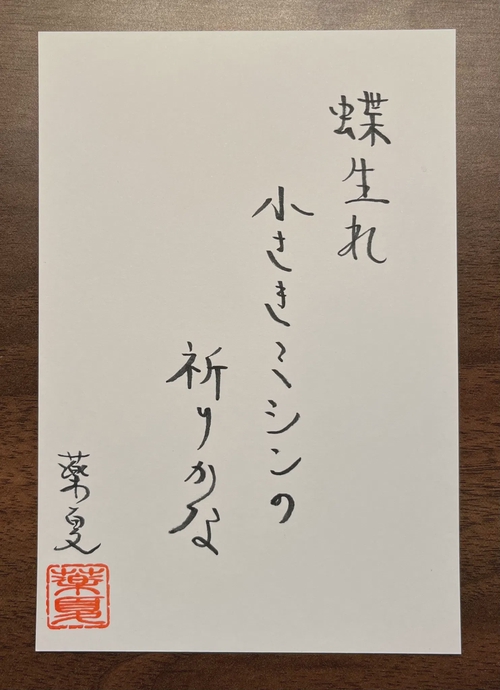 蝶生れ
小さきミシンの
祈りかな
薬夏
薬夏